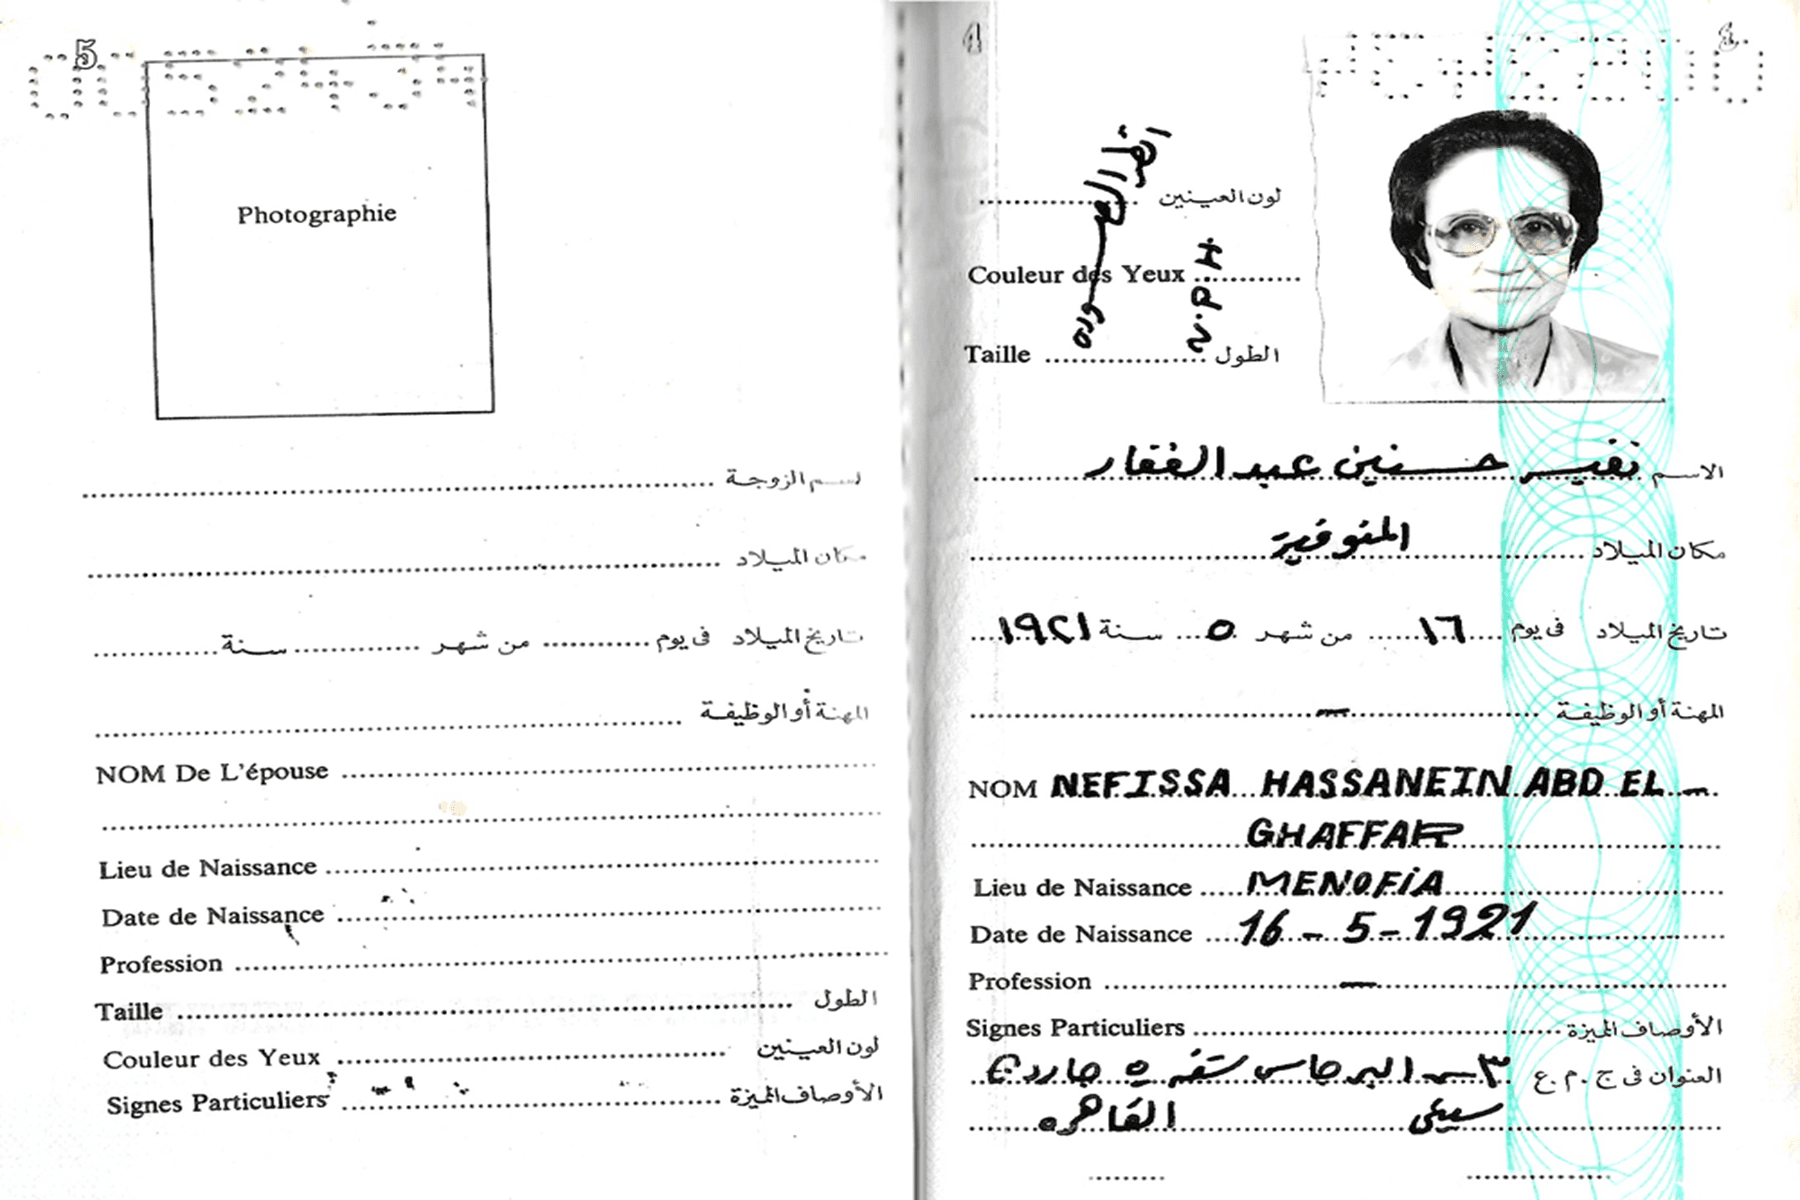 5
0052434
Photographie
اسم الزوجة
مكان الميلاد
تاريخ الميلاد فى يوم من شهر سنة
المهنة أو الوظيفة
NOM De L'épouse
Lieu de Naissance
Date de Naissance
Profession
Taille الطول
Couleur des Yeux لون العينين
Signes Particuliers الأوصاف المميزة
4
لون العينين
Couleur des Yeux
Taille الطول
انظر الصوره
V.P.H
الاسم نفيسه حسنين عبد الغفار
مكان الميلاد المنوفية
تاريخ الميلاد فى يوم ١٦ من شهر ٥ سنة ١٩٢١
المهنة أو الوظيفة —
NOM NEFISSA HASSANEIN ABD EL —
GHAFFAR
Lieu de Naissance MENOFiA
Date de Naissance 16 - 5 - 1921
Profession —
Signes Particuliers الأوصاف المميزة
العنوان فى ج . م . ع ٣ ش البرجاس شقه ٥ جاردن
سيتى القاهره